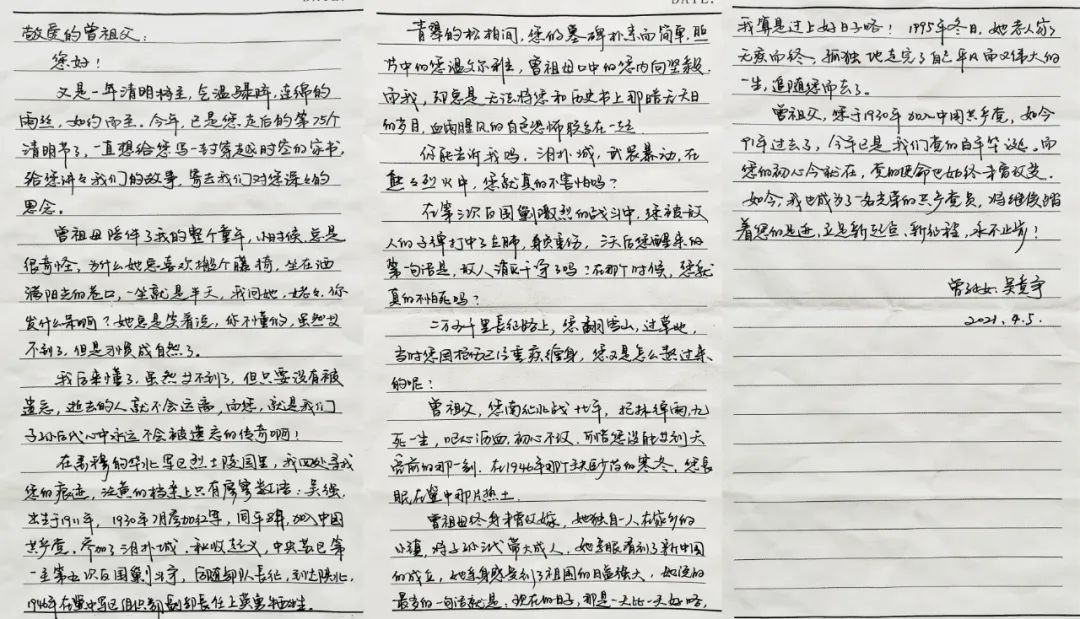 DATE.
敬爱的曾祖父：
您好！
又是一年清明将至，气温骤降，连绵的
雨丝，如约而至。今年，已是您走后的第75个
清明节了，一直想给您写一封穿越时空的家书，
给您讲讲我们的故事，寄去我们对您深深的
思念。
曾祖母陪伴了我的整个童年，小时候，总是
很奇怪，为什么她总喜欢搬个藤椅，坐在洒
满阳光的巷口，一坐就是半天，我问她，姥姥，你
发什么呆啊？她总是笑着说，你不懂的，虽然等
不到了，但是习惯成自然了。
我后来懂了，虽然等不到了，但只要没有被
遗忘，逝去的人就不会远离，而您，就是我们
子孙后代心中永远不会被遗忘的传奇啊！
在肃穆的华北军区烈士陵园里，我四处寻找
您的痕迹，泛黄的档案上只有廖寥数语：吴强，
出生于1911年，1930年7月参加红军，同年8月，加入中国
共产党。参加了汨扑城、秋收起义，中央苏区第
一至第五次反围剿斗争，后随部队长征，到达陕北，
1946年在冀中军区组织部副部长任上英勇牺牲。
青翠的松柏间，您的墓碑朴素而简单，照
片中的您温文尔雅，曾祖母口中的您内向坚毅，
而我，却总是无法将您和历史书上那暗无天日
的岁月，血雨腥风的白色恐怖联系在一起
你能告诉我吗，汨扑城，武装暴动，在
熊熊烈火中，您就真的不害怕吗？
在第三次反围剿激烈的战斗中，您被敌
人的子弹打中了左肺，身负重伤，三天后您醒来的
第一句话是，敌人消灭干净了吗？在那个时候，您就
真的不怕死吗？
二万五千里长征路上，您翻雪山，过草地，
当时您因枪伤已经重疾缠身，您又是怎么熬过来
的呢？
曾祖父，您南征北战十七年，枪林弹雨，九
死一生，呕心沥血，初心不改，可惜您没能等到天
亮前的那一刻。在1946年那个缺医少药的寒冬，您长
眠在冀中那片热土。
曾祖母终身未曾改嫁，她独自一人在家乡的
小镇，将子孙三代带大成人，她亲眼看到了新中国
的成立，她亲身感受到了祖国的日益强大，她说的
最多的一句话就是：现在的日子，那是一天比一天好咯，
我算是过上好日子咯！1995年冬日，她老人家
无疾而终，孤独地走完了自己平凡而又伟大的
一生，追随您而去了。
曾祖父，您于1930年加入中国共产党，如今
91年过去了，今年已是我们党的百年华诞。而
您的初心今犹在，党的使命也始终未曾改变。
如今，我也成为了一名光荣的共产党员，将继续踏
着您的足迹，立足新起点，新征程，永不止步！
曾孙女：吴
2021.4.5.